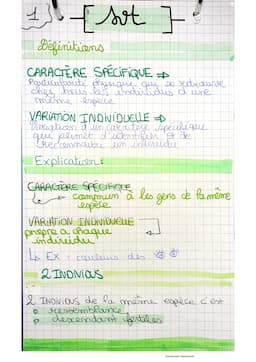 1
svt
Définitions
CARACTÈRE SPÉCIFIQUE ⇒
Particularité physique qui se retrouve
chez tous les individus d'une
même espèce
VARIATION INDIVIDUELLE ⇒
Variation d'un caractère spécifique
qui permet d'identifier et de
reconnaître un individu
Explication :
CARACTÈRE SPÉCIFIQUE
commun à les gens de la même
espèce
VARIATION INDIVIDUELLE
propre a chaque
individu
↳ Ex : couleurs des
2 INDIVIDUS
2 INDIVIDUS de la même espèce c'est
ressemblance
descendant fertiles